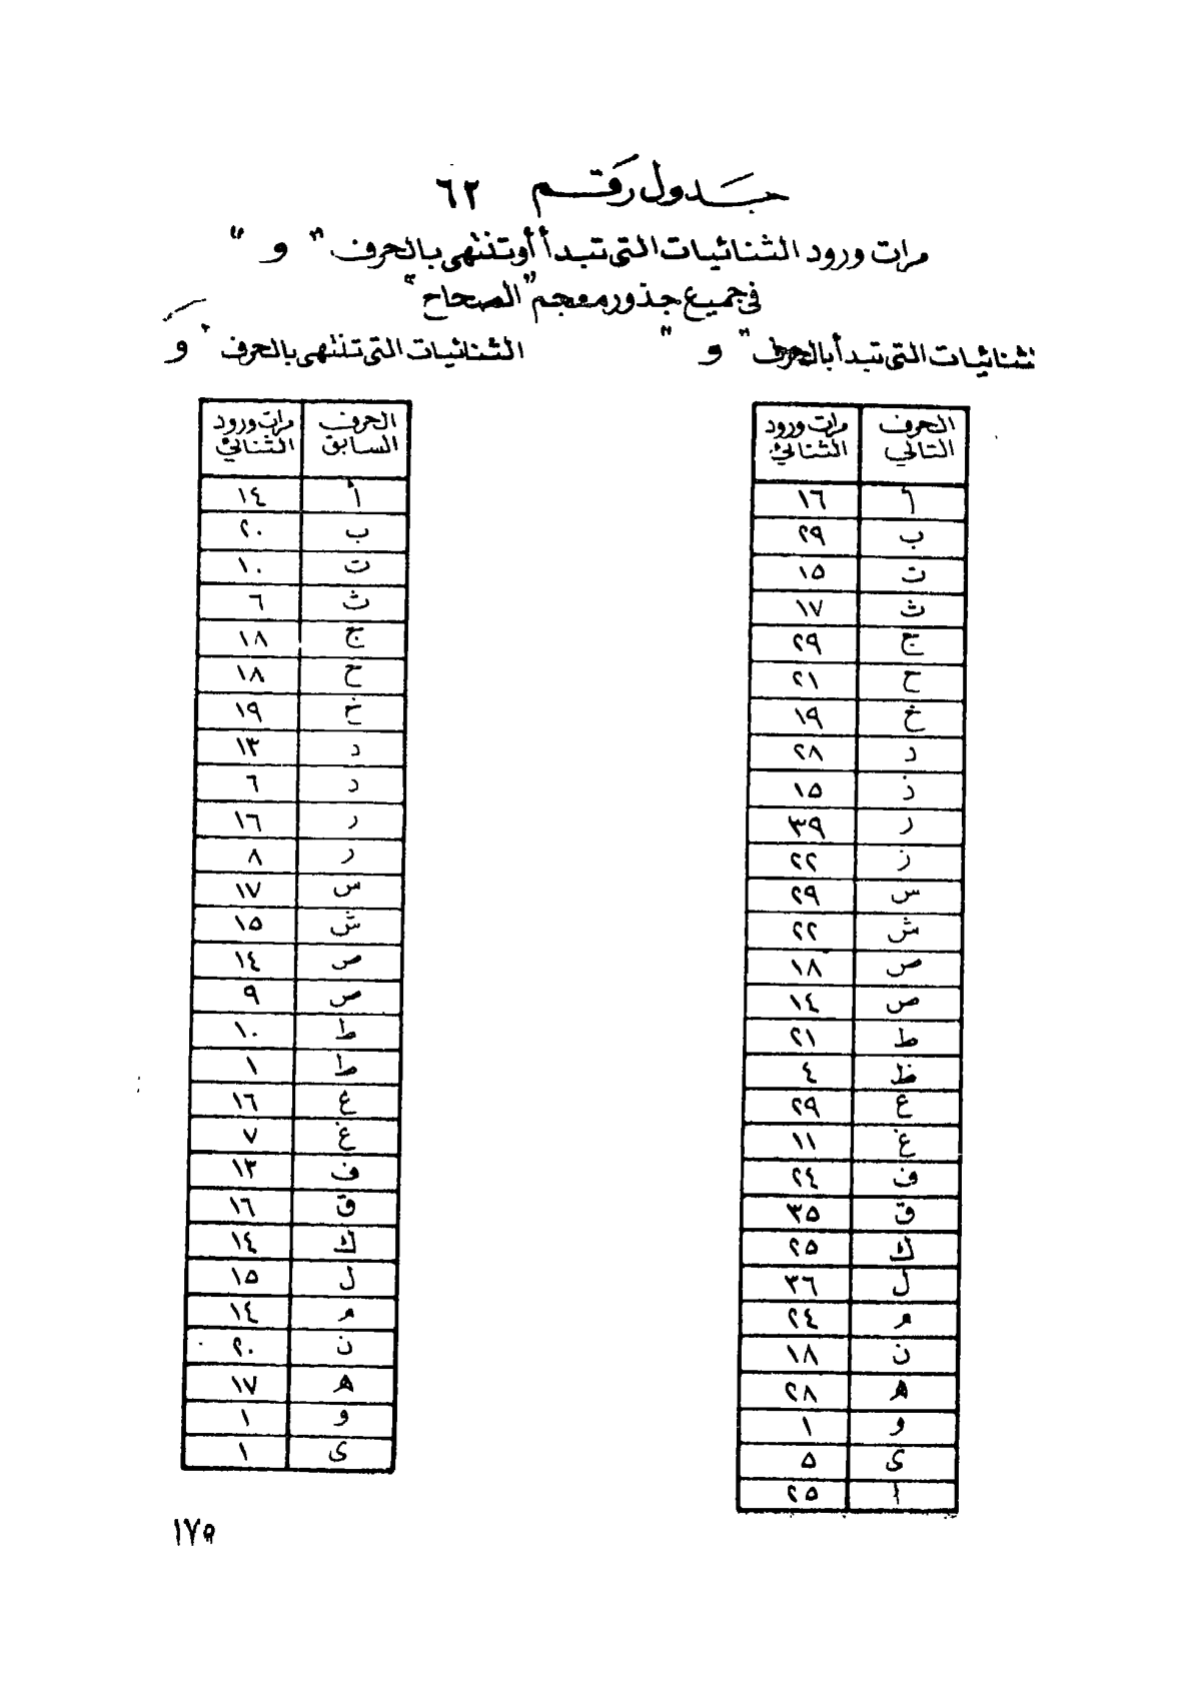 جدول رقم ٦٢
مرات ورود الثنائيات التى تبدأ أو تنتهى بالحرف " و "
فى جميع جذور معجم "الصحاح"
ثنائيات التى تبدأ بالحرف " و "
الحرف التالي | مرات ورود الثنائي
أ ١٦
ب ٢٩
ت ١٥
ث ١٧
ج ٢٩
ح ٢١
خ ١٩
د ٢٨
ذ ١٥
ر ٣٩
ز ٢٢
س ٢٩
ش ٢٢
ص ١٨
ص ١٤
ط ٢١
ظ ٤
ع ٢٩
غ ١١
ف ٢٤
ق ٣٥
ك ٢٥
ل ٣٦
م ٢٤
ن ١٨
ه ٢٨
و ١
ى ٥
ا ٢٥
الثنائيات التى تنتهى بالحرف " و
الحرف السابق | مرات ورود الثنائي
أ ١٤
ب ٢٠
ت ١٠
ث ٦
ج ١٨
ح ١٨
خ ١٩
د ١٣
د ٦
ر ١٦
ر ٨
س ١٧
ش ١٥
ص ١٤
ص ٩
ط ١٠
ط ١
ع ١٦
غ ٧
ف ١٣
ق ١٦
ك ١٤
ل ١٥
م ١٤
ن ٢٠
ه ١٧
و ١
ى ١
١٧٥